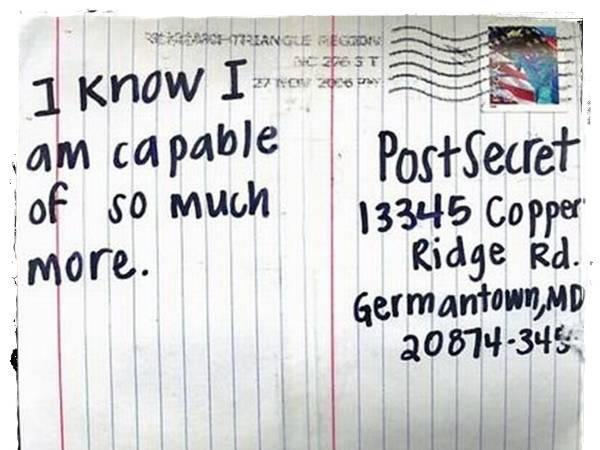 RESEARCH TRIANGLE REGION
NC 276 3 T
27 NOV 2006 PM
I know I
am capable
of so much
more.
PostSecret
13345 Copper
Ridge Rd.
Germantown,MD
20874-345